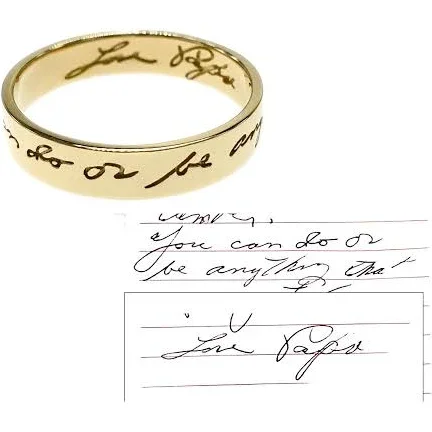 Love
do or be any
"You can do or
be anything that
Love